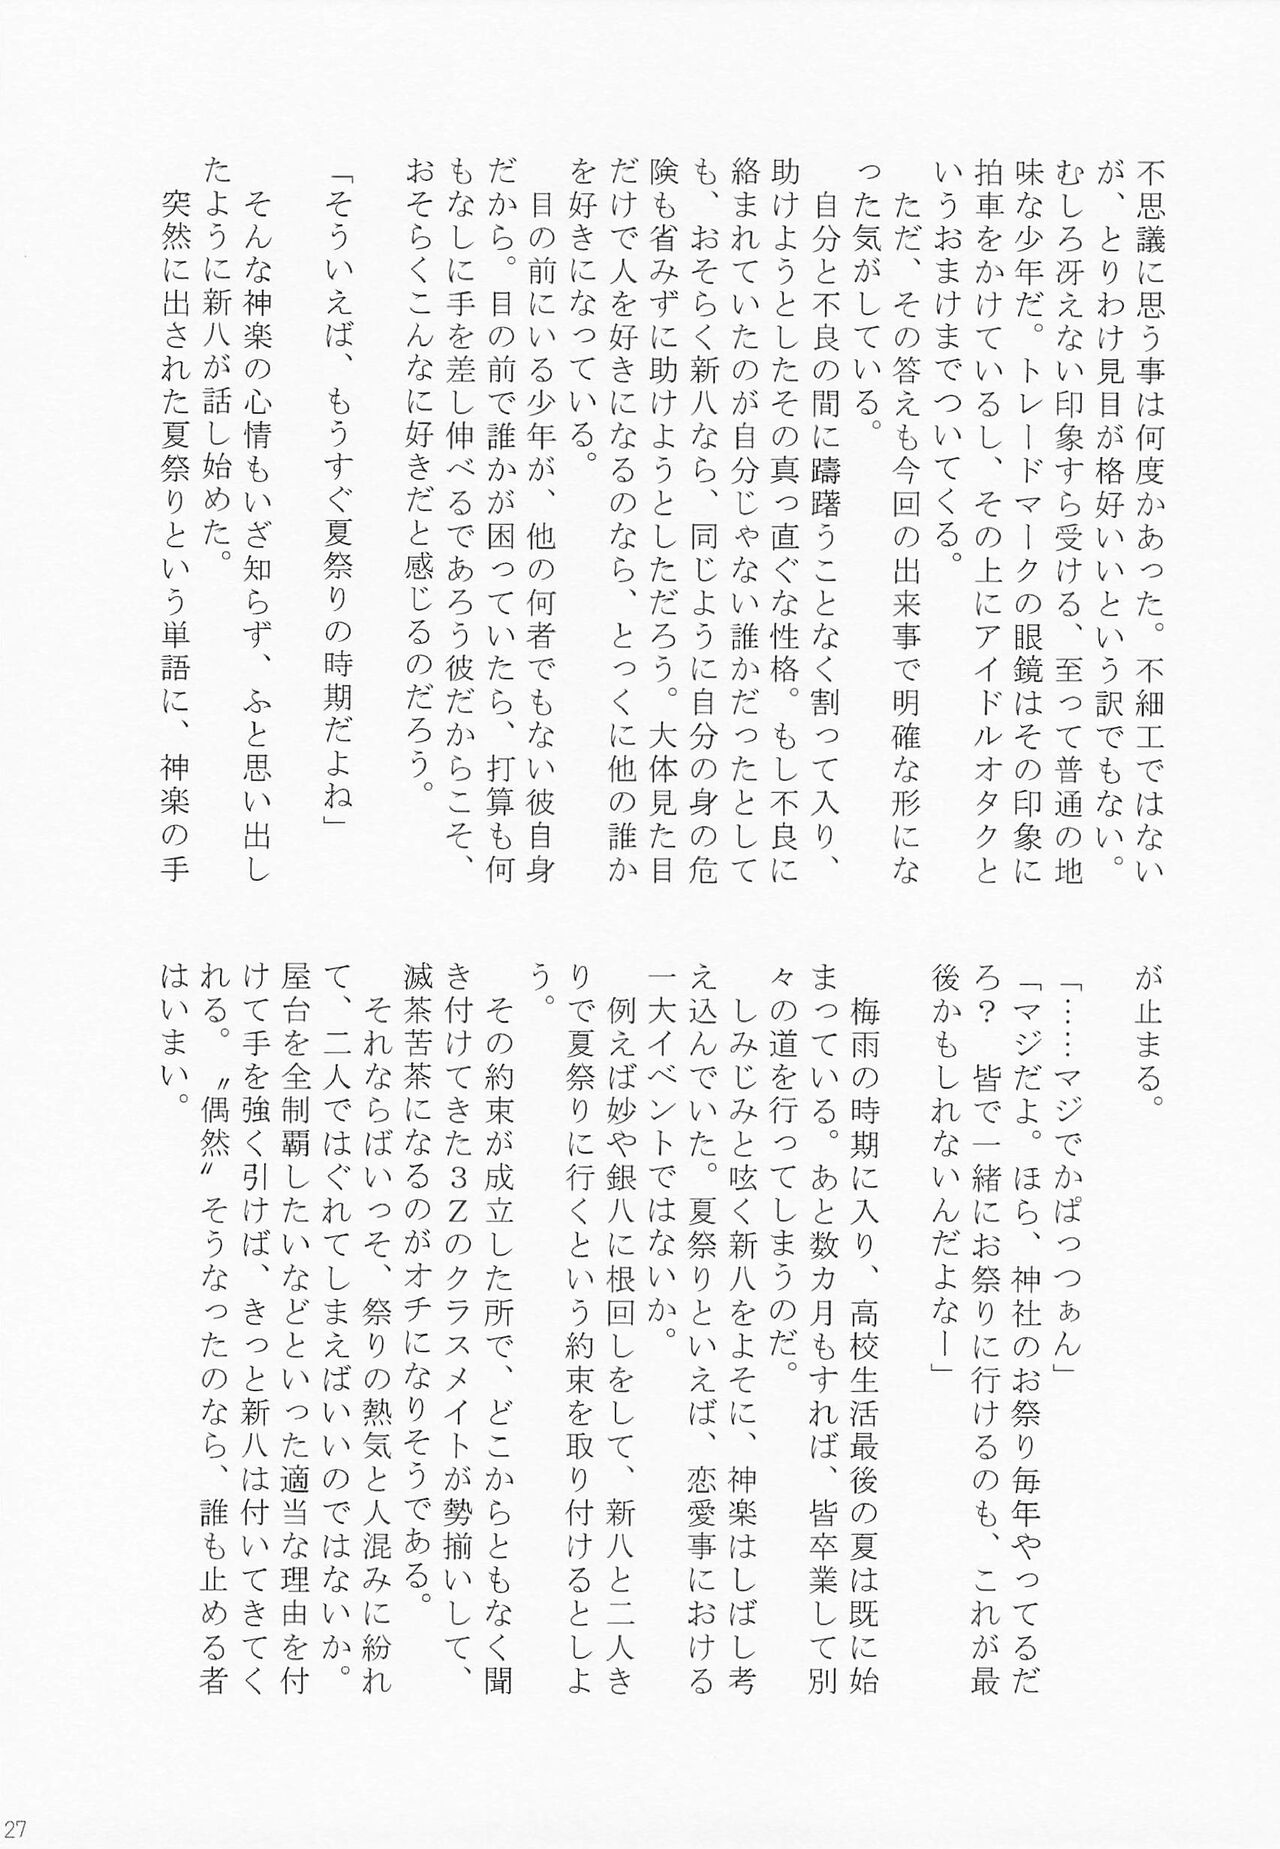 不思議に思う事は何度かあった。不細工ではない
が、とりわけ見目が格好いいという訳でもない。
むしろ冴えない印象すら受ける、至って普通の地
味な少年だ。トレードマークの眼鏡はその印象に
拍車をかけているし、その上にアイドルオタクと
いうおまけまでついてくる。
ただ、その答えも今回の出来事で明確な形にな
った気がしている。
自分と不良の間に躊躇うことなく割って入り、
助けようとしたその真っ直ぐな性格。もし不良に
絡まれていたのが自分じゃない誰かだったとして
も、おそらく新八なら、同じように自分の身の危
険も省みずに助けようとしただろう。大体見た目
だけで人を好きになるのなら、とっくに他の誰か
を好きになっている。
目の前にいる少年が、他の何者でもない彼自身
だから。目の前で誰かが困っていたら、打算も何
もなしに手を差し伸べるであろう彼だからこそ、
おそらくこんなに好きだと感じるのだろう。
「そういえば、もうすぐ夏祭りの時期だよね」
そんな神楽の心情もいざ知らず、ふと思い出し
たように新八が話し始めた。
突然に出された夏祭りという単語に、神楽の手
が止まる。
「……マジでかぱっつぁん」
「マジだよ。ほら、神社のお祭り毎年やってるだ
ろ？　皆で一緒にお祭りに行けるのも、これが最
後かもしれないんだよなー」
梅雨の時期に入り、高校生活最後の夏は既に始
まっている。あと数カ月もすれば、皆卒業して別
々の道を行ってしまうのだ。
しみじみと呟く新八をよそに、神楽はしばし考
え込んでいた。夏祭りといえば、恋愛事における
一大イベントではないか。
例えば妙や銀八に根回しをして、新八と二人き
りで夏祭りに行くという約束を取り付けるとしよ
う。
その約束が成立した所で、どこからともなく聞
き付けてきた３Ｚのクラスメイトが勢揃いして、
滅茶苦茶になるのがオチになりそうである。
それならばいっそ、祭りの熱気と人混みに紛れ
て、二人ではぐれてしまえばいいのではないか。
屋台を全制覇したいなどといった適当な理由を付
けて手を強く引けば、きっと新八は付いてきてく
れる。〝偶然〟そうなったのなら、誰も止める者
はいまい。
27